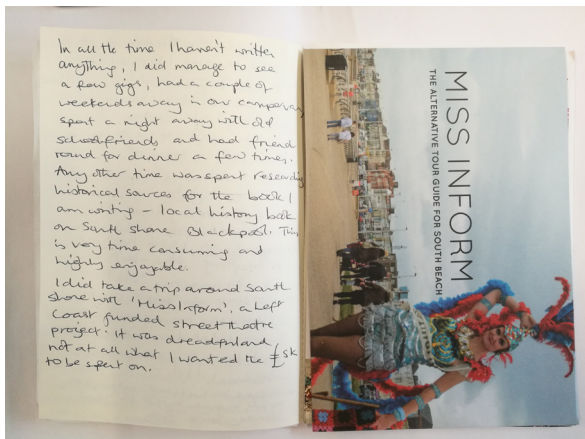 In all the time I haven't written
anything, I did manage to see
a few gigs, had a couple of
weekends away in our campervan
spent a night away with old
schoolfriends and had friend
round for dinner a few times.
Any other time was spent researching
historical sources for the book I
am writing - local history book
on South Shore Blackpool. This
is very time consuming and
highly enjoyable.
I did take a trip around South
Shore with 'Miss Inform', a Left
Coast funded street theatre
project. It was dreadful and
not at all what I wanted the £5k
to be spent on.
MISS INFORM
THE ALTERNATIVE TOUR GUIDE FOR SOUTH BEACH